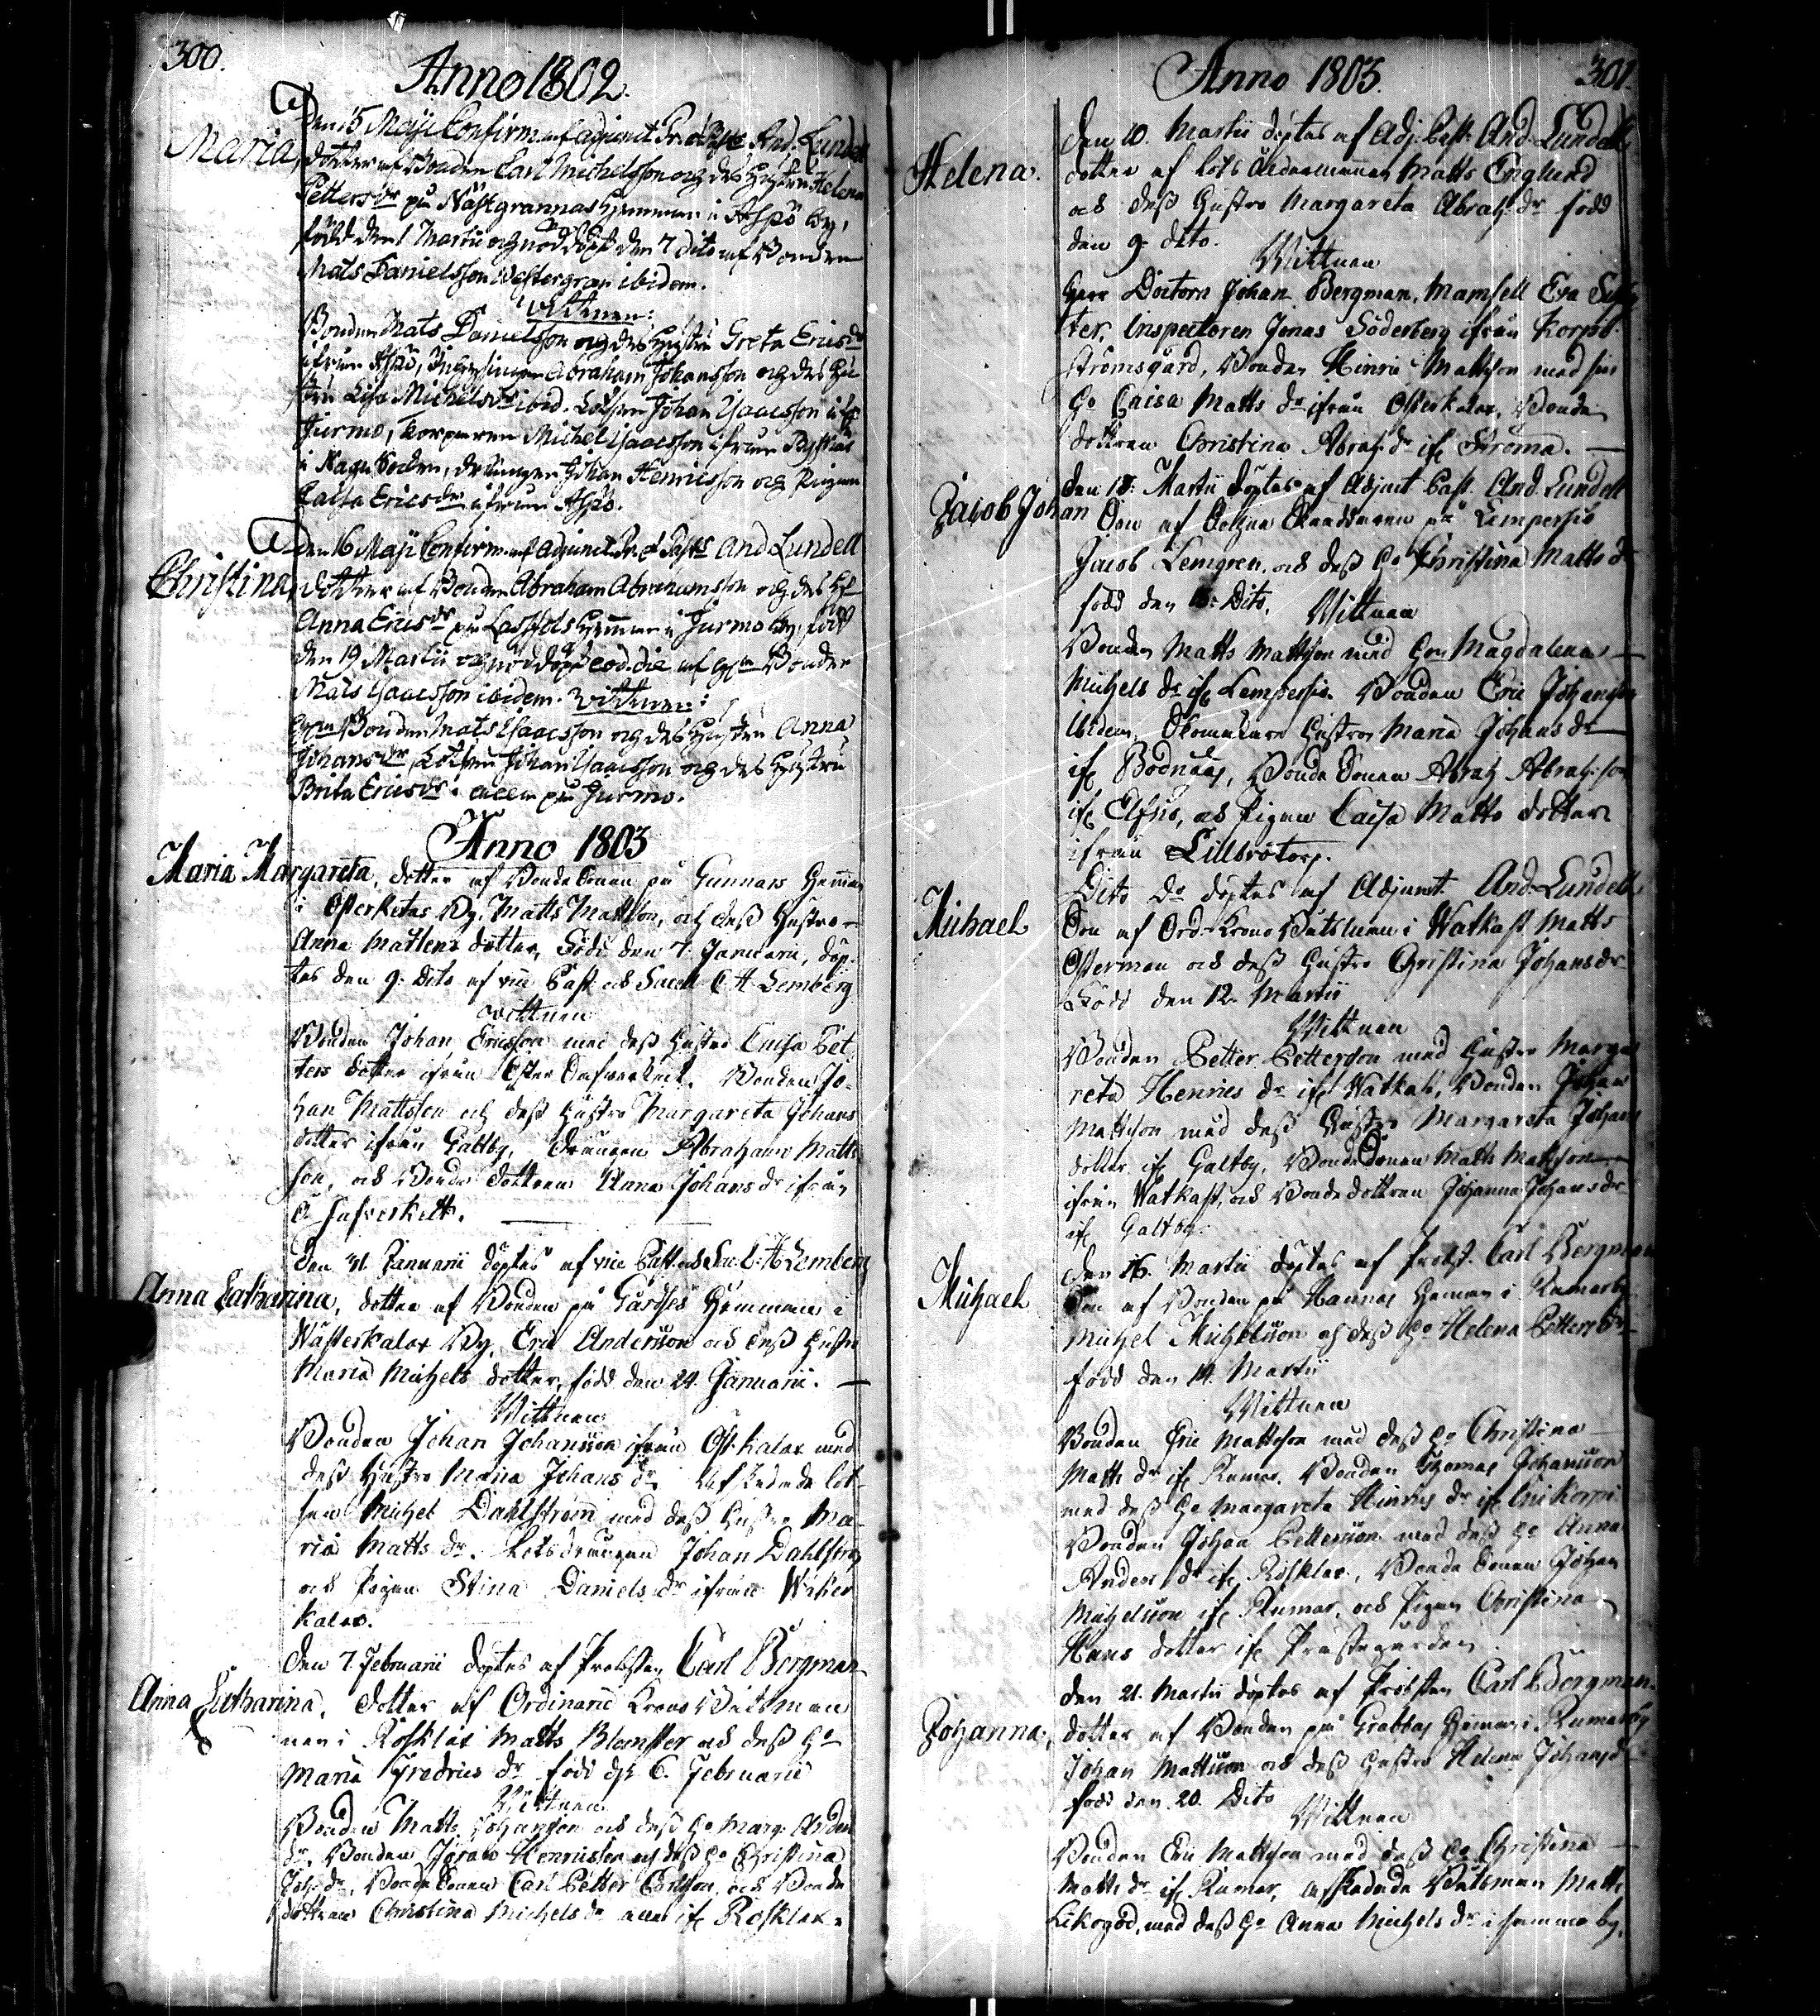 300.
Anno 1802.
Den 15 Maji Confirm. af adjunct And. Lundell
Maria, dotter af Bonden Carl Michelsson och des Hustru Helena
Pettersdr på Nästgrannas Hemman i Aspö by,
född den 1 Martii och nöddöpt den 7 dito af Bonden
Mats Danielsson Westergran ibidem.
Vittnen:
Bonden Mats Danielsson och des Hustru Greta Ericsdr
ifrån Aspö, Abraham Johansson och des Hu
stru Lisa Michelsdr ibid. Lotsen Johan Isaacsson ifr
Jurmo, Torparen Michel Isaacsson ifrån
i Nagu Sochn, drängen Johan Henricsson och Pigan
Caisa Ericsdr ifrån Aspö.
Den 16 Maji Confirm. af adjunct. And Lundell
Christina, dotter af Bonden Abraham Abrahamsson och des H
Anna Ericsdr på Hemman i Jurmo by, född
den 19 Martii och nöddöpt eod. die af Bonden
Mats Isaacsson ibidem. Vittnen:
Bonden Mats Isaacsson och des Hustru Anna
Johansdr, Lotsen Johan Isaacsson och des Hustru
Brita Ericsdr. alla på Jurmo.
Anno 1803
Maria Margareta, dotter af Bonde Sonen på Gunnars Hemman
i Österketas By. Matts Mattson, och dess Hustro
Anna Mattens dotter, Född den 7. Januarii, döp-
tes den 9. dito af vice Past. och Sacell. C H Lemberg
Vittnen
Bonden Johan Ericsson med dess Hustro Caisa Pet
ters dotter ifrån Öster Bonden Jo-
han Mattsson och dess Hustro Margareta Johans
dotter ifrån Galtby, Drängen Abraham Matts
son, och Bonde dottren Anna Johans dr ifrån
Ö
Den 31 Januarii döptes af vice Past. och Sac. C. H Lemberg
Anna Catharina, dotter af Bonden på Hemman i
Wästerkalax By. Eric Andersson och dess Hustro
Maria Michels dotter, född den 24. Januarii.
Vittnen
Bonden Johan Johansson ifrån Öst. kalax med
dess Hustro Maria Johans dr Afskedade lot-
sen Michel Dahlström med dess Hustro Ma-
ria Matts dr. Lotsdrängen Johan Dahlström
och Pigan Stina Daniels dr ifrån Wäster
kalax.
Den 7. Februarii döptes af Probsten Carl Bergman
Anna Catharina, dotter af Ordinarie Krono Båtsman
nen i Rosklax Matts Blomster och dess Ho
Maria Fredrics dr född d. 6. Februarii
Vittnen
Bonden Matts Johansson och dess Ho Marg. Anders
dr, Bonden Jöran Henricsson och dess Ho Christina
Joh. dr, Bonde Sonen Carl Petter Carlsson, och Bonde
dottren Christina Michels dr alla ifr Rosklax.
Anno 1803. 301.
Den 10. Martii döptes af Adj. Past. And. Lundell
Helena. dotter af Lots Åldermannen Matts Englund
och dess Hustro Margareta Abrah. dr född
den 9. dito.
Vittnen
Herr Doctorn Johan Bergman, Mamsell Eva
ter, Inspectoren Jonas Söderberg ifrån Korpo
strömsgård, Bonden Hinric Mattson med sin
Ho Caisa Matts dr ifrån Österkalax, Bonde
dottren Christina Abrah. dr ifr Ströma.
Den 18. Martii döptes af Adjunct Past. And. Lundell
Jacob Johan Son af Sochne Skräddaren på Lempersiö
Jacob Lemgren, och dess Ho Christina Matts dr
född den 16. Dito. Vittnen
Bonden Matts Mattson med Hon Magdalena
Michels dr ifr Lempersiö. Bonden Eric Johansson
ibidem, Hustron Maria Johans dr
ifr Bodnäs, Bonde Sonen Abrah Abrah. son
ifr Elfsiö, och Pigan Caisa Matts dotter
ifrån Lillbrötorp.
Dito Do döptes af Adjunct And. Lundell
Michael Son af Ord. Krono Båtsman i Watkast Matts
Österman och dess Hustro Christina Johansdr
Född den 12. Martii
Vittnen
Bonden Petter Petterson med Hustro Marga
reta Henrics dr ifr Watkast, Bonden Johan
Mattsson med dess Hustro Margareta Johans
dotter ifr Galtby, Bonde Sonen Matts Mattson
ifrån Watkast, och Bonde dottren Johanna Johansdr
ifr Galtby.
Den 16. Martii döptes af Probst. Carl Bergman
Michael Son af Bonden på Hannas Heman i Rumarby
Michel Michelsson och dess Ho Helena Petters dr
född den 14. Martii
Vittnen
Bonden Eric Mattsson med dess Ho Christina
Matts dr ifr Rumar, Bonden Thomas Johansson
med dess Ho Margareta Hinrics dr ifr
Bonden Johan Pettersson med dess Ho Anna
Anders dr ifr Rosklax, Bonde Sonen Johan
Michelsson ifr Rumar, och Pigan Christina
Hans dotter ifr Prästegården
Den 21. Martii döptes af Probsten Carl Bergman
Johanna, dotter af Bonden på Grabbas Heman i Rumarby
Johan Mattsson och dess Hustro Helena Johansdr
född den 20. Dito
Vittnen
Bonden Eric Mattson med dess Ho Christina
Matts dr ifr Rumar, afskedade Båtsman Matts
Likogod, med dess Ho Anna Michels dr i samma by,